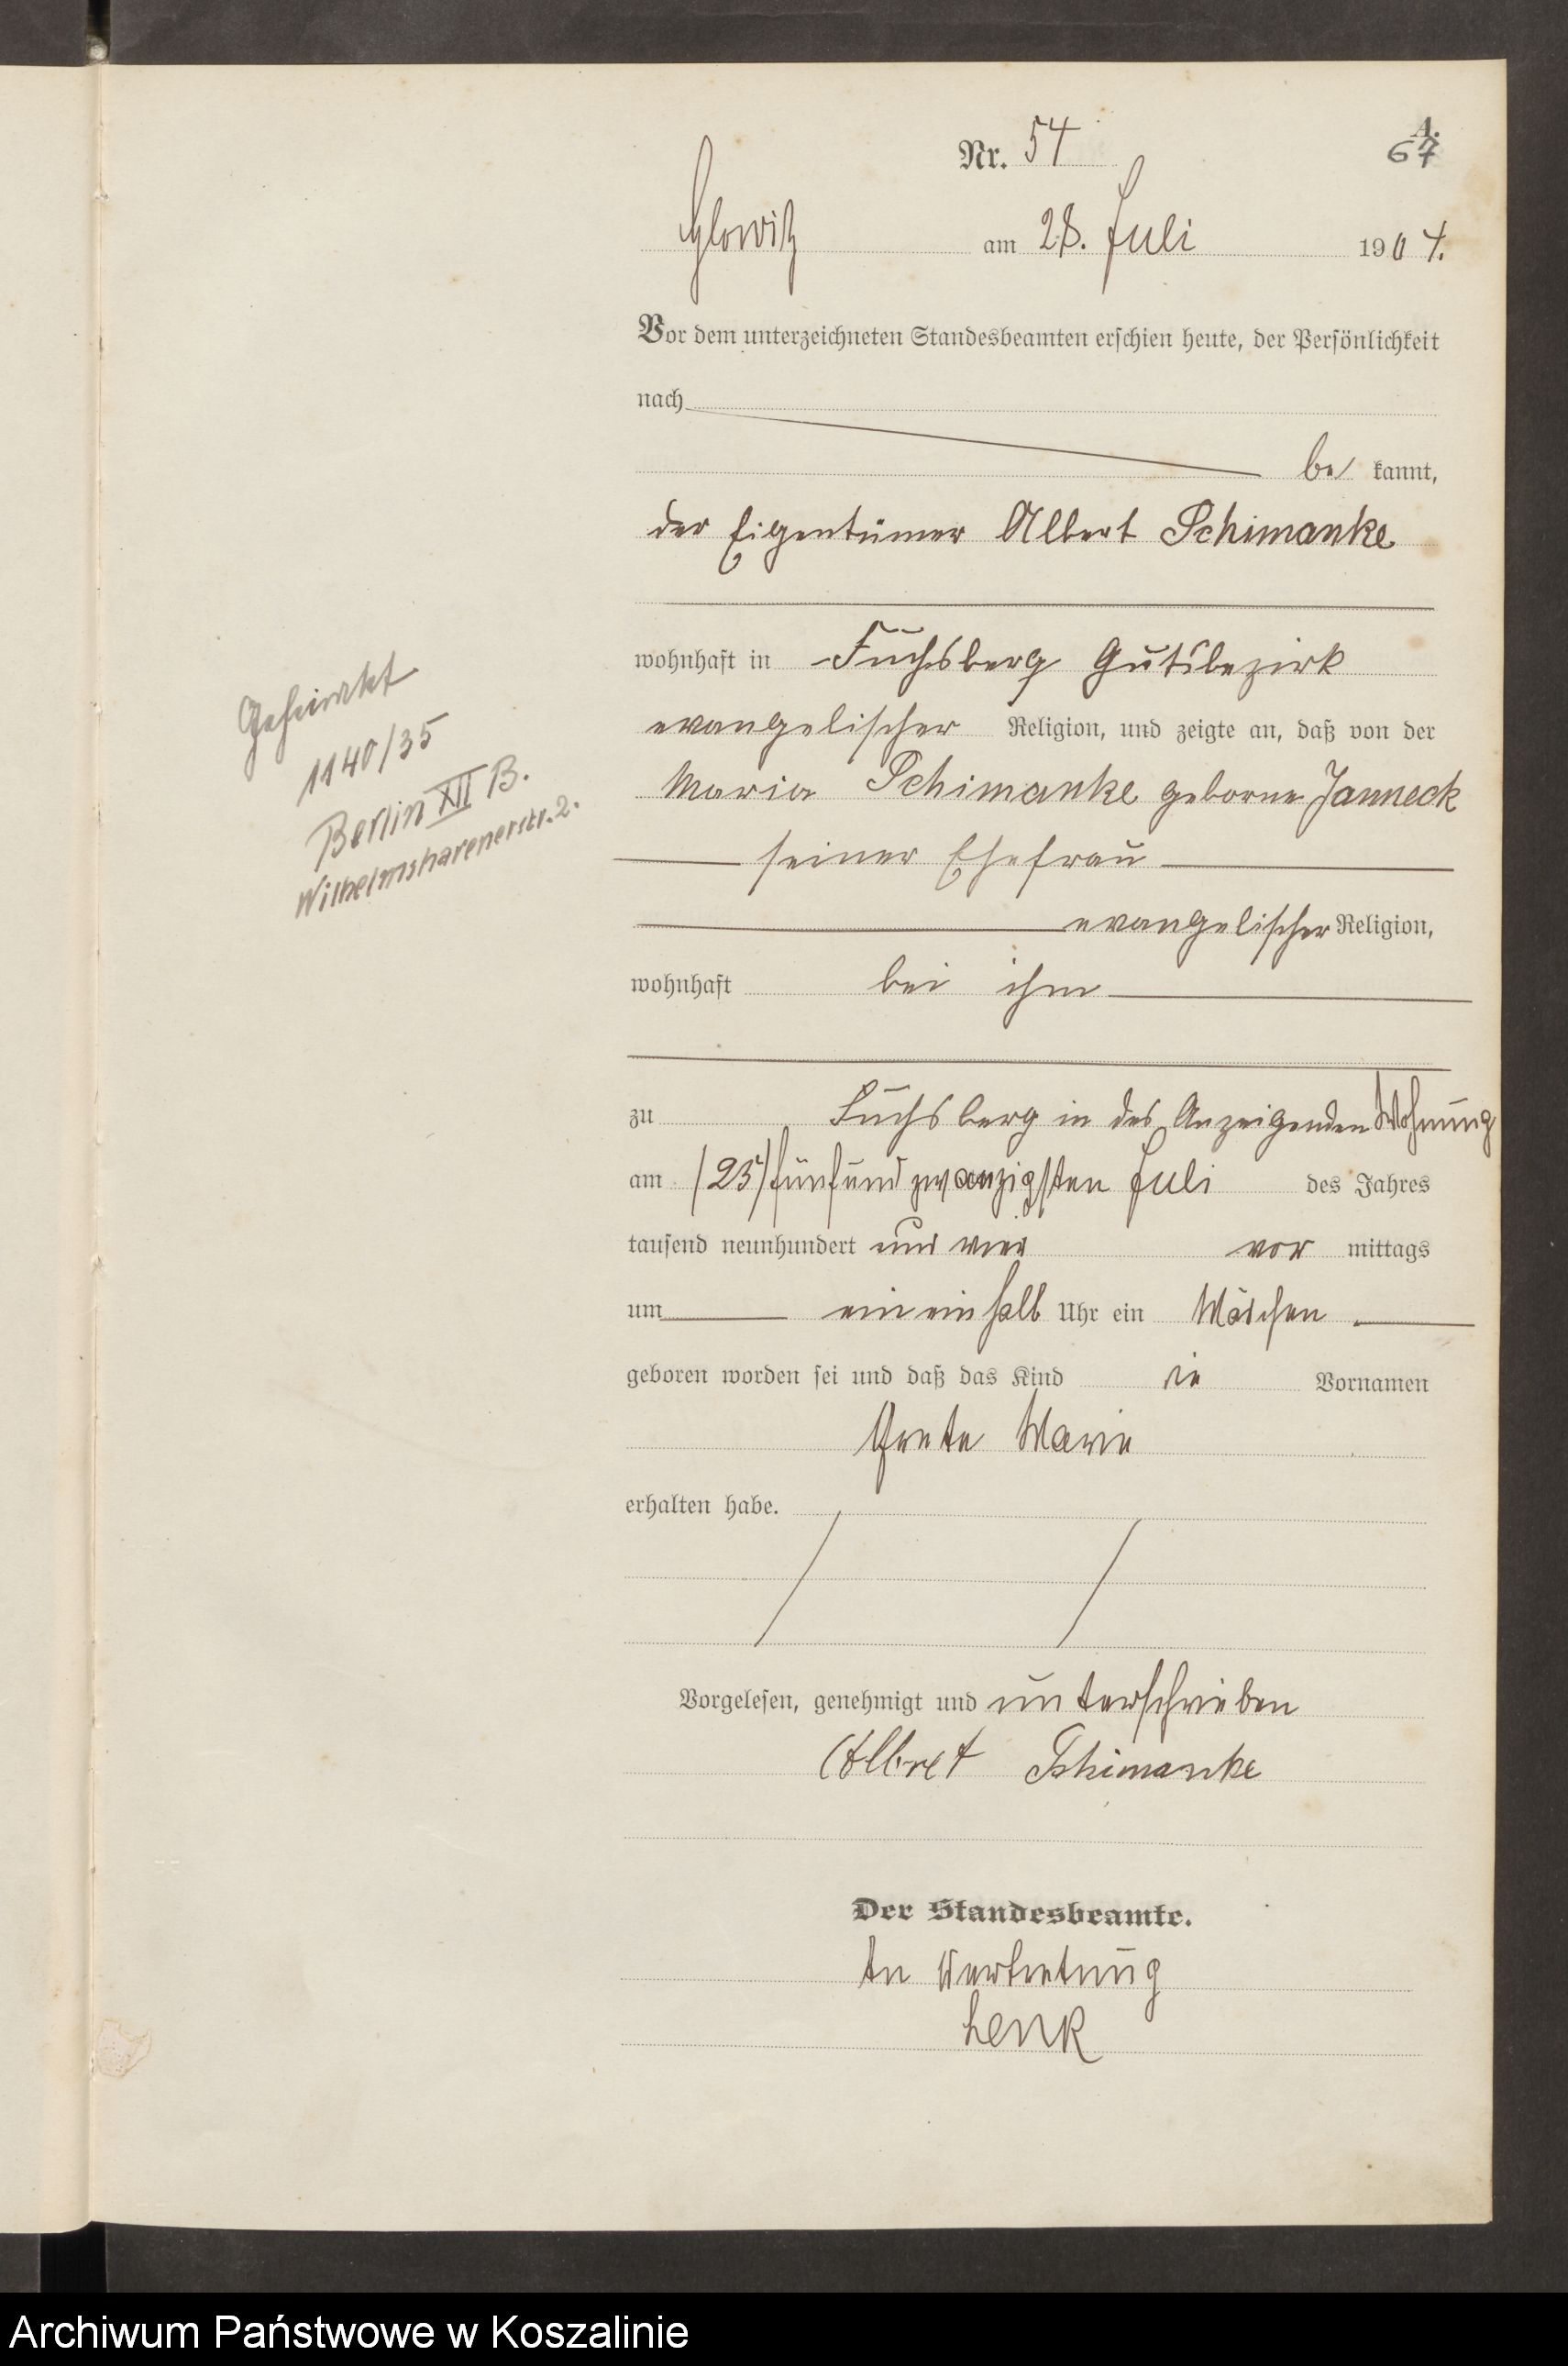 A.
Nr. 54
67
Glowitz am 28. Juli 1904.
Vor dem unterzeichneten Standesbeamten erschien heute, der Persönlichkeit
nach
be kannt,
der Eigentümer Albert Schimanke
wohnhaft in Fuchsberg Gutsbezirk
evangelischer Religion, und zeigte an, daß von der
Maria Schimanke geborne Janneck
seiner Ehefrau
evangelischer Religion,
wohnhaft bei ihm
zu Fuchsberg in des Anzeigenden Wohnung
am (25) fünfundzwanzigsten Juli des Jahres
tausend neunhundert und vier vor mittags
um ein einhalb Uhr ein Mädchen
geboren worden sei und daß das Kind die Vornamen
Grete Marie
erhalten habe.
Vorgelesen, genehmigt und unterschrieben
Albret Schimanke
Der Standesbeamte.
In Vertretung
Lenk
Geheiratet
1140/35
Berlin XII B.
Wilhelmshavenerstr. 2.
Archiwum Państwowe w Koszalinie